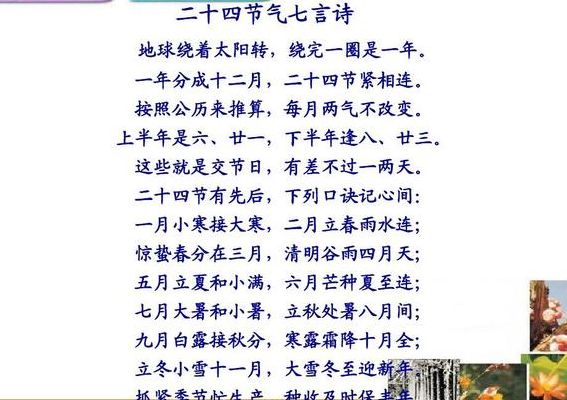 二十四节气七言诗
地球绕着太阳转，绕完一圈是一年。
一年分成十二月，二十四节紧相连。
按照公历来推算，每月两气不改变。
上半年是六、廿一，下半年逢八、廿三。
这些就是交节日，有差不过一两天。
二十四节有先后，下列口诀记心间：
一月小寒接大寒，二月立春雨水连；
惊蛰春分在三月，清明谷雨四月天；
五月立夏和小满，六月芒种夏至连；
七月大暑和小暑，立秋处暑八月间；
九月白露接秋分，寒露霜降十月全；
立冬小雪十一月，大雪冬至迎新年。
抓紧季节忙生产，种收及时保丰年。